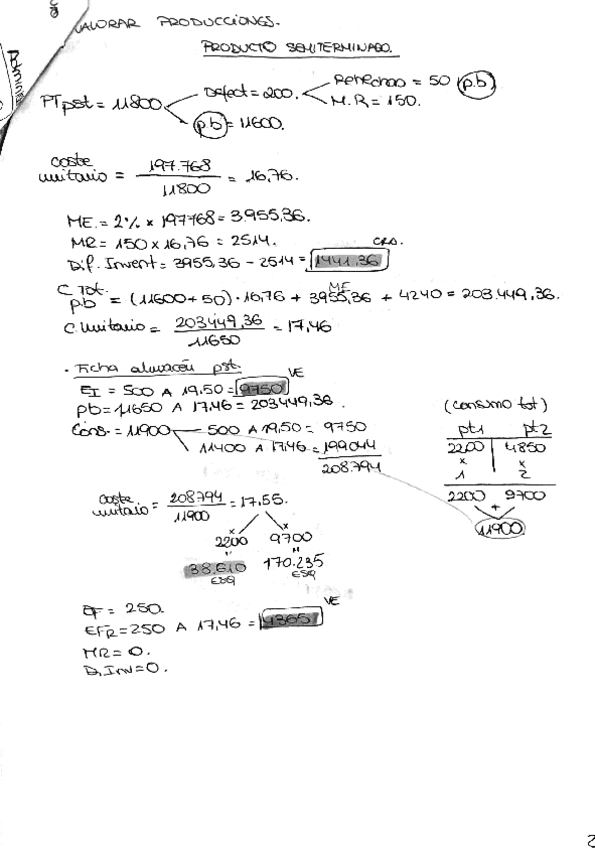 VALORAR PRODUCCIONES.
PRODUCTO SEMITERMINADO.
Admini
PTpst = 11800
Defect = 200.
Rehechao = 50 (p.b)
M.R = 150.
p.b = 11600.
coste unitario = 197.768 / 11800 = 16,76.
ME. = 2% x 197768 = 3.955,36.
MR = 150 x 16,76 = 2514.
Dif. Invent = 3955,36 - 2514 = 1441,36 CRA.
C. Tot. p.b = (11600+50) · 16,76 + 3955,36 + 4240 = 203.449,36.
ME
C. Unitario = 203449,36 / 11650 = 17,46
· Ficha almacén pst.
EI = 500 A 19,50 = 9750 VE
pb = 11650 A 17,46 = 203449,36.
Cons. = 11900
500 A 19,50 = 9750
11400 A 17,46 = 199044
208.794
(consumo tot)
pt1 pt2
2200 4850
x x
1 2
2200 9700
+
11900
coste unitario = 208794 / 11900 = 17,55.
x x
2200 9700
" "
38.610 170.235
ESQ ESQ
EF = 250.
EFR = 250 A 17,46 = 4365 VE
MR = 0.
D. Inv = 0.
2